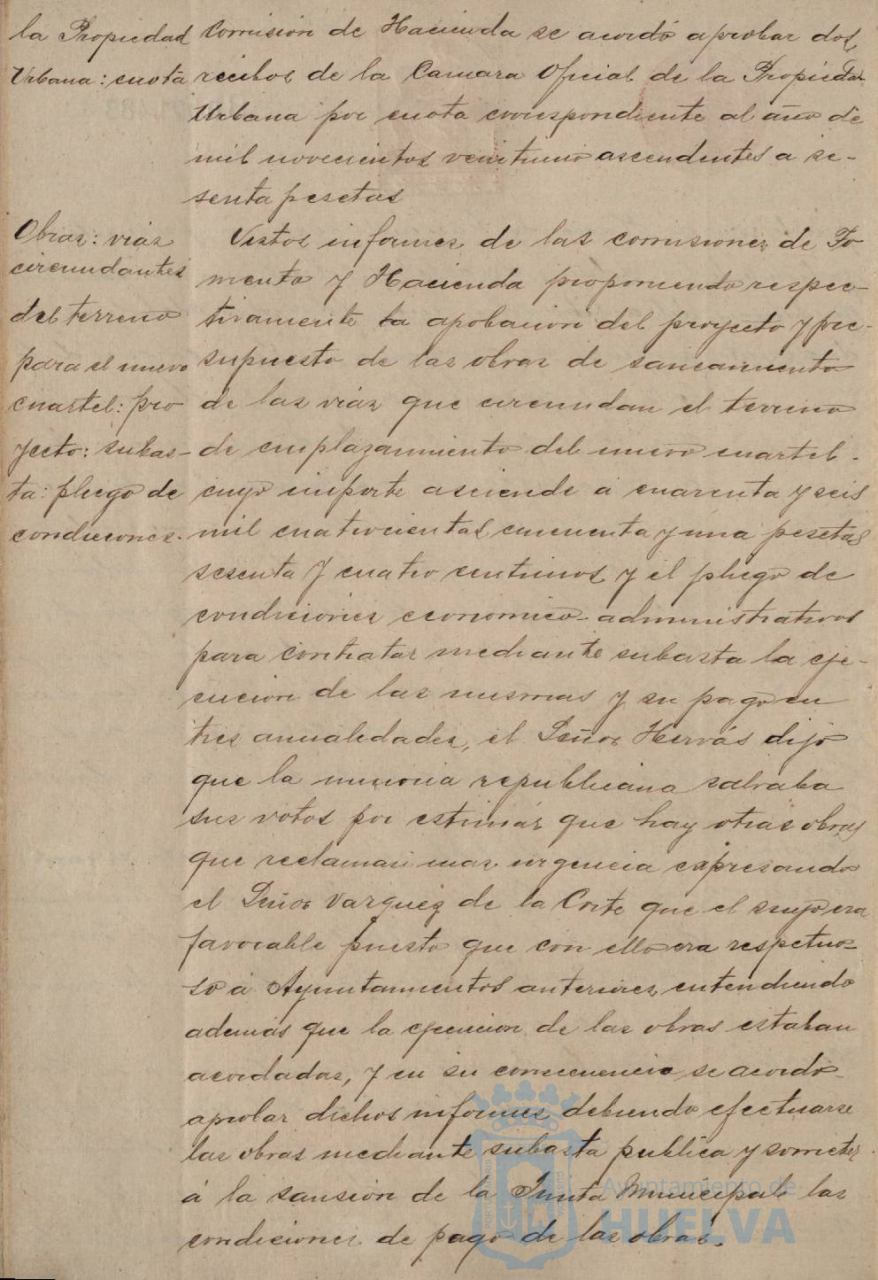 la Propiedad
Urbana: cuota
Comisión de Hacienda se acordó aprobar dos
recibos de la Camara Oficial de la Propiedad
Urbana por cuota correspondiente al año de
mil novecientos veintiuno ascendentes a se-
senta pesetas
Obras: vias
circundantes
del terreno
para el nuevo
cuartel: pro
yecto: subas-
ta: pliego de
condiciones.
Vistos informes de las comisiones de Fo
mento y Hacienda proponiendo respec-
tivamente la apobacion del proyecto y pre-
supuesto de las obras de saneamiento
de las vias que circundan el terreno
de emplazamiento del nuevo cuartel.
cuyo importe asciende á cuarenta y seis
mil cuatrocientas cincuenta y una pesetas
sesenta y cuatro centimos y el pliego de
condiciones economico-administrativas
para contratar mediante subasta la eje-
cucion de las mismas y su pago en
tres anualidades, el Señor Hervás dijo
que la minoria republicana salvaba
sus votos por estimar que hay otras obras
que reclaman mas urgencia expresando
el Señor Vazquez de la Corte que el suyo era
favorable puesto que con ello era respetuo-
so á Ayuntamientos anteriores, entendiendo
además que la ejecucion de las obras estaban
acordadas, y en su consecuencia se acordó
aprobar dichos informes, debiendo efectuarse
las obras mediante subasta publica y someter
á la sansión de la Junta Municipal las
condiciones de pago de las obras.
Ayuntamiento de
HUELVA